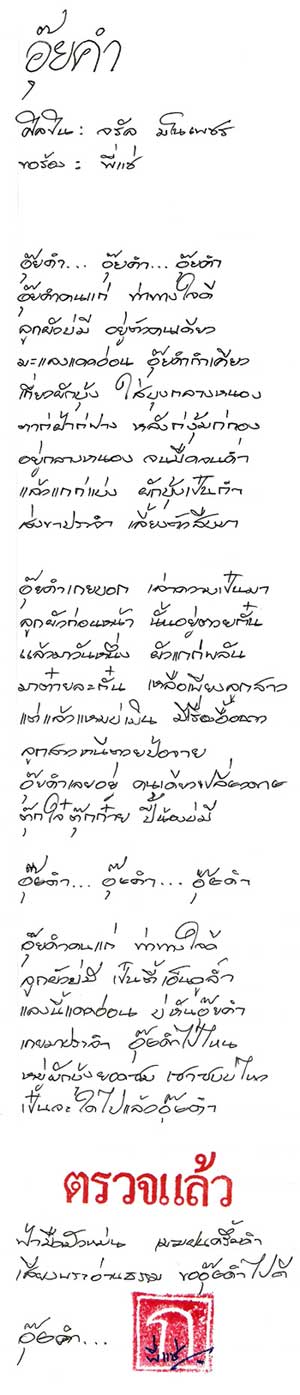 อุ๊ยคำ
ศิลปิน : จรัล มโนเพชร
ขอร้อง : พี่แช่
อุ๊ยคำ... อุ๊ยคำ... อุ๊ยคำ
อุ๊ยคำคนแก่ ท่าทางใจดี
ลูกผัวบ่มี อยู่ตัวคนเดียว
มะแลงแดดอ่อน อุ๊ยคำกำเคียว
เกี่ยวผักบุ้ง ใส่บุงกลางหนอง
ตาก่ฝ้าก่ฟาง หลังก่งุ้มก่กอง
อยู่กลางหนอง จนมืดจนค่ำ
แล้วแกก่แบ่ง ผักบุ้งเป็นกำ
ส่งขาประจำ เลี้ยงตัวสืบมา
อุ๊ยคำเกยบอก เล่าความเป็นมา
ลูกผัวก่อนหน้า นั้นอยู่ตวยกั๋น
แล้วมาวันหนึ่ง ผัวแกก่พลัน
มาต๋ายละกั๋น เหลือเพียงลูกสาว
แต่แล้วแหมบ่เมิน มีเรื่องอื้อฉาว
ลูกสาวหนีตวยป้อจาย
อุ๊ยคำเลยอยู่ คนเดียวเปลี่ยวดาย
ตุ๊กใจ๋ตุ๊กก๋าย ปี้น้องบ่มี
อุ๊ยคำ... อุ๊ยคำ... อุ๊ยคำ
อุ๊ยคำคนแก่ ท่าทางใจดี
ลูกผัวบ่มี เป็นตี้เอ็นดูล้ำ
แลงนี้แดดอ่อน บ่หันอุ๊ยคำ
เกยมาประจำ อุ๊ยคำไปไหน
หมู่ผักบุ้งยอดซม เซาซบบ่ไหว
เป็นละใดไปแล้วอุ๊ยคำ
ตรวจแล้ว
ฟ้ามืดมัวหม่น เมฆฝนครึ้มดำ
เสียงพระอ่านธรรม ขออุ๊ยคำไปดี
อุ๊ยคำ...
ก
พี่แช่